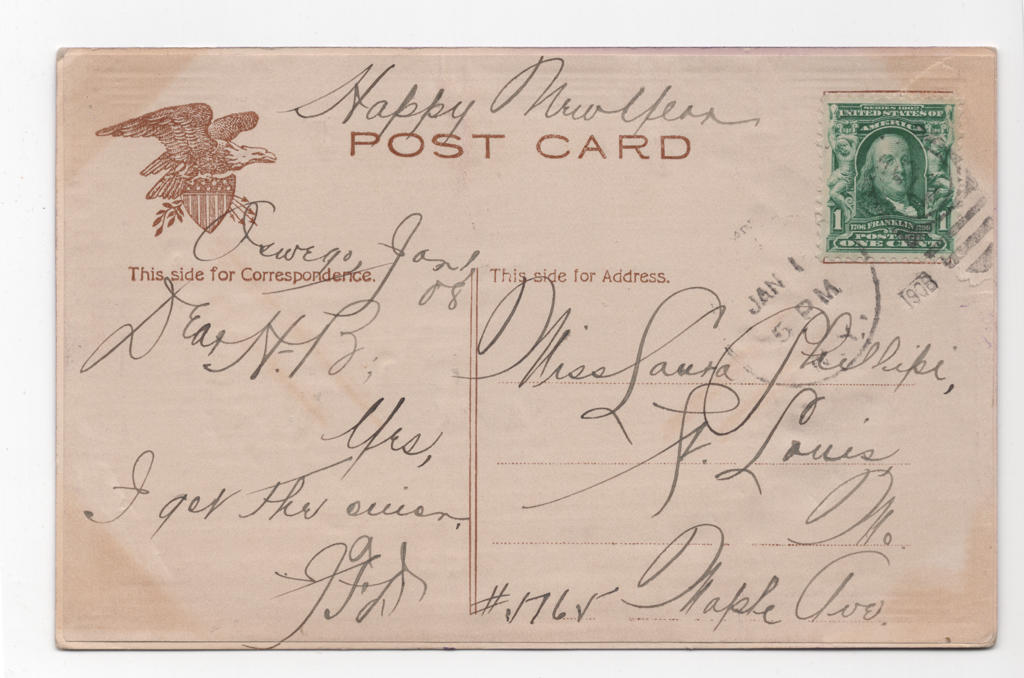 Happy New Year
POST CARD
SERIES 1902
UNITED STATES OF
AMERICA
1 1
1706 FRANKLIN 1790
POSTAGE
ONE CENT
JAN 1
5 PM
1908
Oswego, Jan 1
08
This side for Correspondence.
Dear H. B.,
Yes,
I get the
This side for Address.
Miss Laura Phillipi,
St. Louis
Mo.
#5765 Maple Ave.